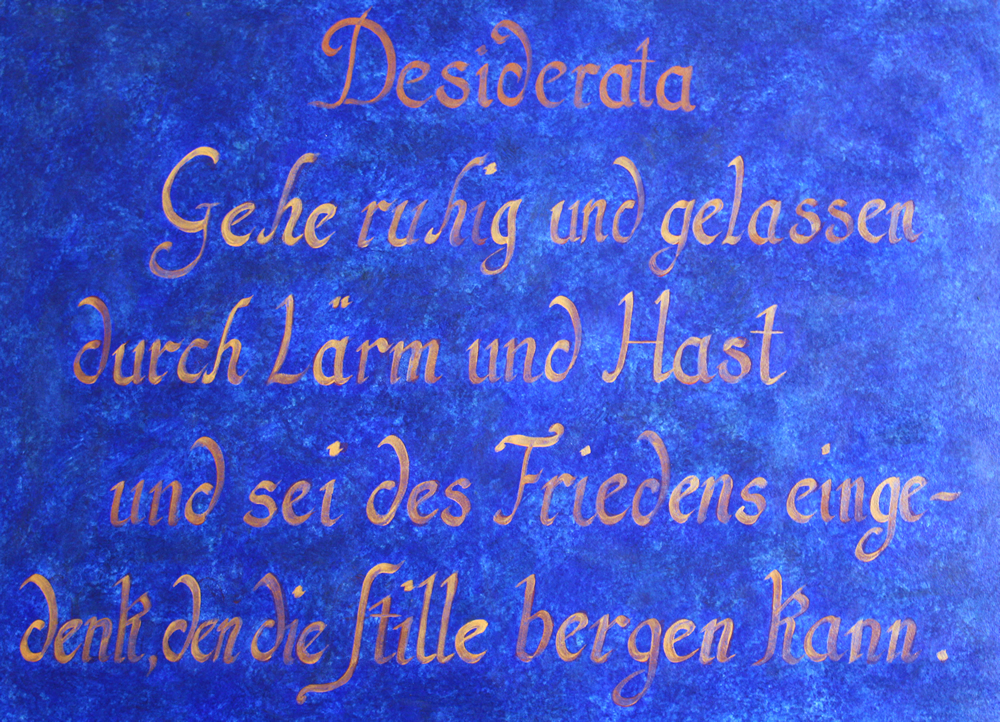 Desiderata
Gehe ruhig und gelassen
durch Lärm und Hast
und sei des Friedens einge-
denk, den die Stille bergen kann.